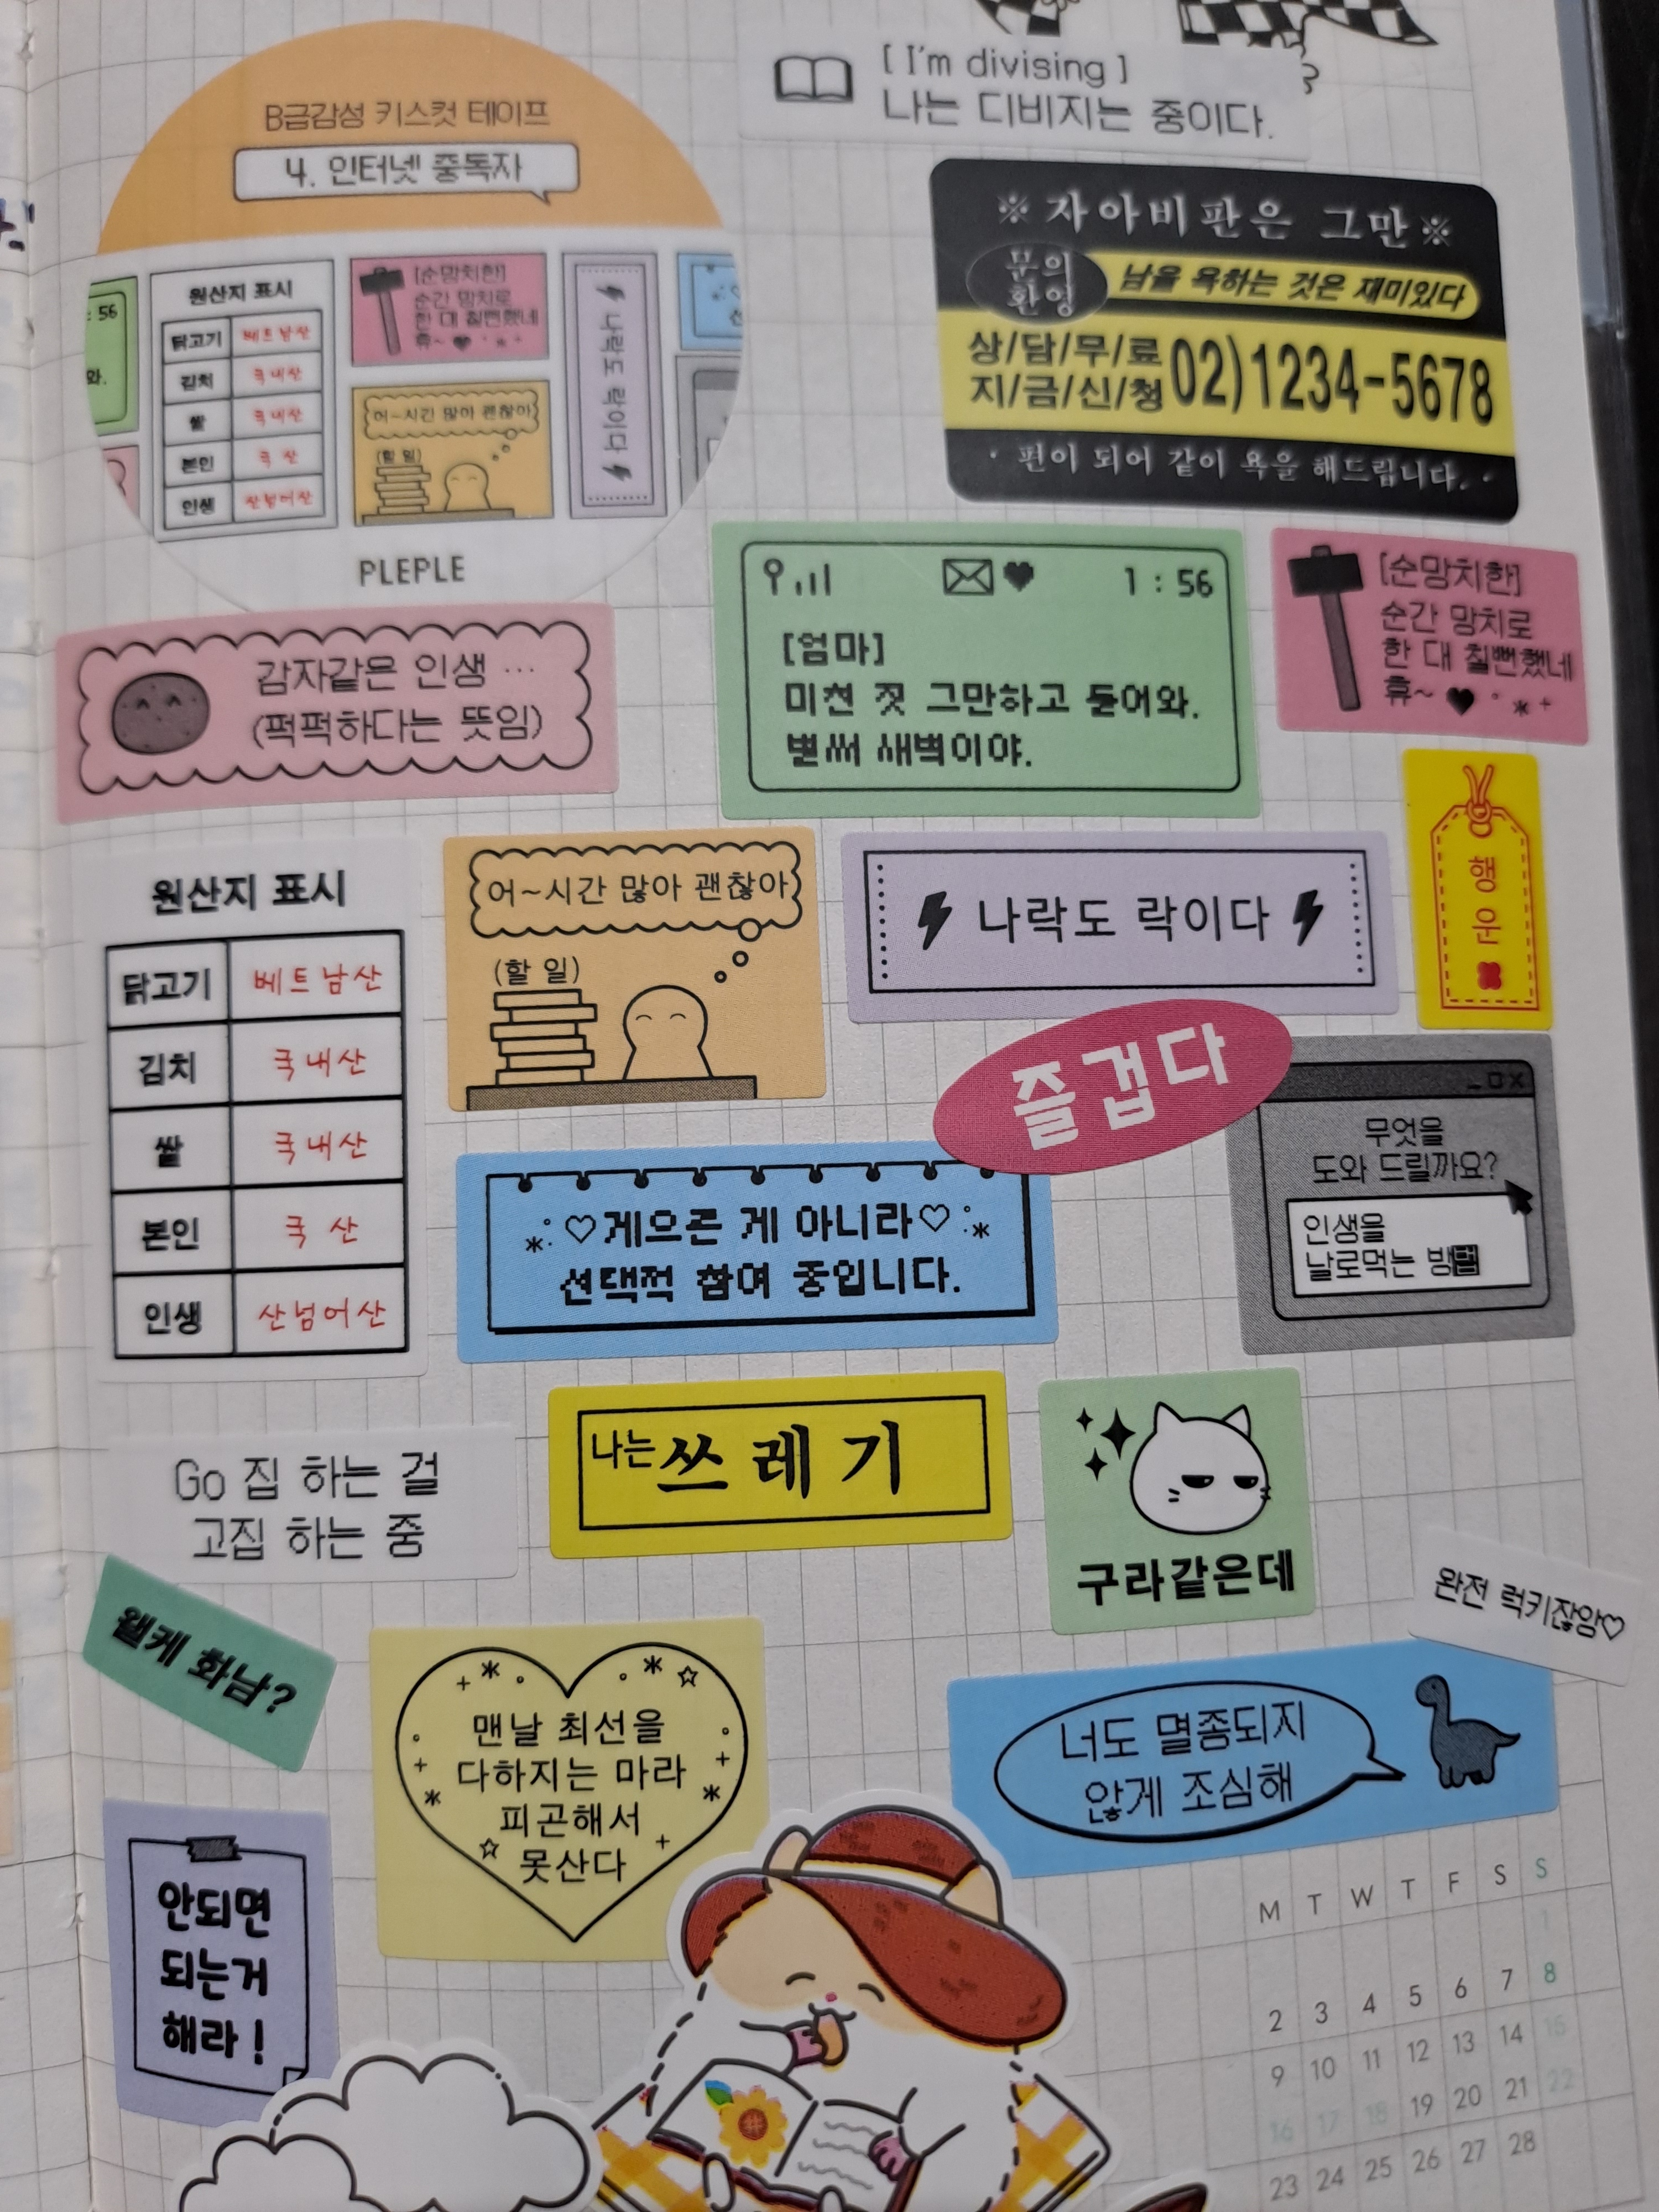 [ I'm divising ]
나는 디비지는 중이다.
B급감성 키스컷 테이프
4. 인터넷 중독자
: 56
와.
원산지 표시
닭고기 베트남산
김치 국내산
쌀 국내산
본인 국 산
인생 산넘어산
[순망치한]
순간 망치로
한 대 칠뻔했네
휴~
어~시간 많아 괜찮아
(할 일)
나락도 락이다
PLEPLE
※자아비판은 그만※
문의
환영
남을 욕하는 것은 재미있다
상/담/무/료
지/금/신/청
02)1234-5678
· 편이 되어 같이 욕을 해드립니다. ·
감자같은 인생 …
(퍽퍽하다는 뜻임)
1 : 56
[엄마]
미친 짓 그만하고 들어와.
벌써 새벽이야.
[순망치한]
순간 망치로
한 대 칠뻔했네
휴~
행
운
원산지 표시
닭고기 베트남산
김치 국내산
쌀 국내산
본인 국 산
인생 산넘어산
어~시간 많아 괜찮아
(할 일)
나락도 락이다
즐겁다
무엇을
도와 드릴까요?
인생을
날로먹는 방법
♡게으른 게 아니라♡
선택적 참여 중입니다.
Go 집 하는 걸
고집 하는 중
나는 쓰레기
구라같은데
완전 럭키잖앙♡
웰케 화남?
맨날 최선을
다하지는 마라
피곤해서
못산다
너도 멸종되지
않게 조심해
안되면
되는거
해라!
M T W T F S S
1
2 3 4 5 6 7 8
9 10 11 12 13 14 15
16 17 18 19 20 21 22
23 24 25 26 27 28